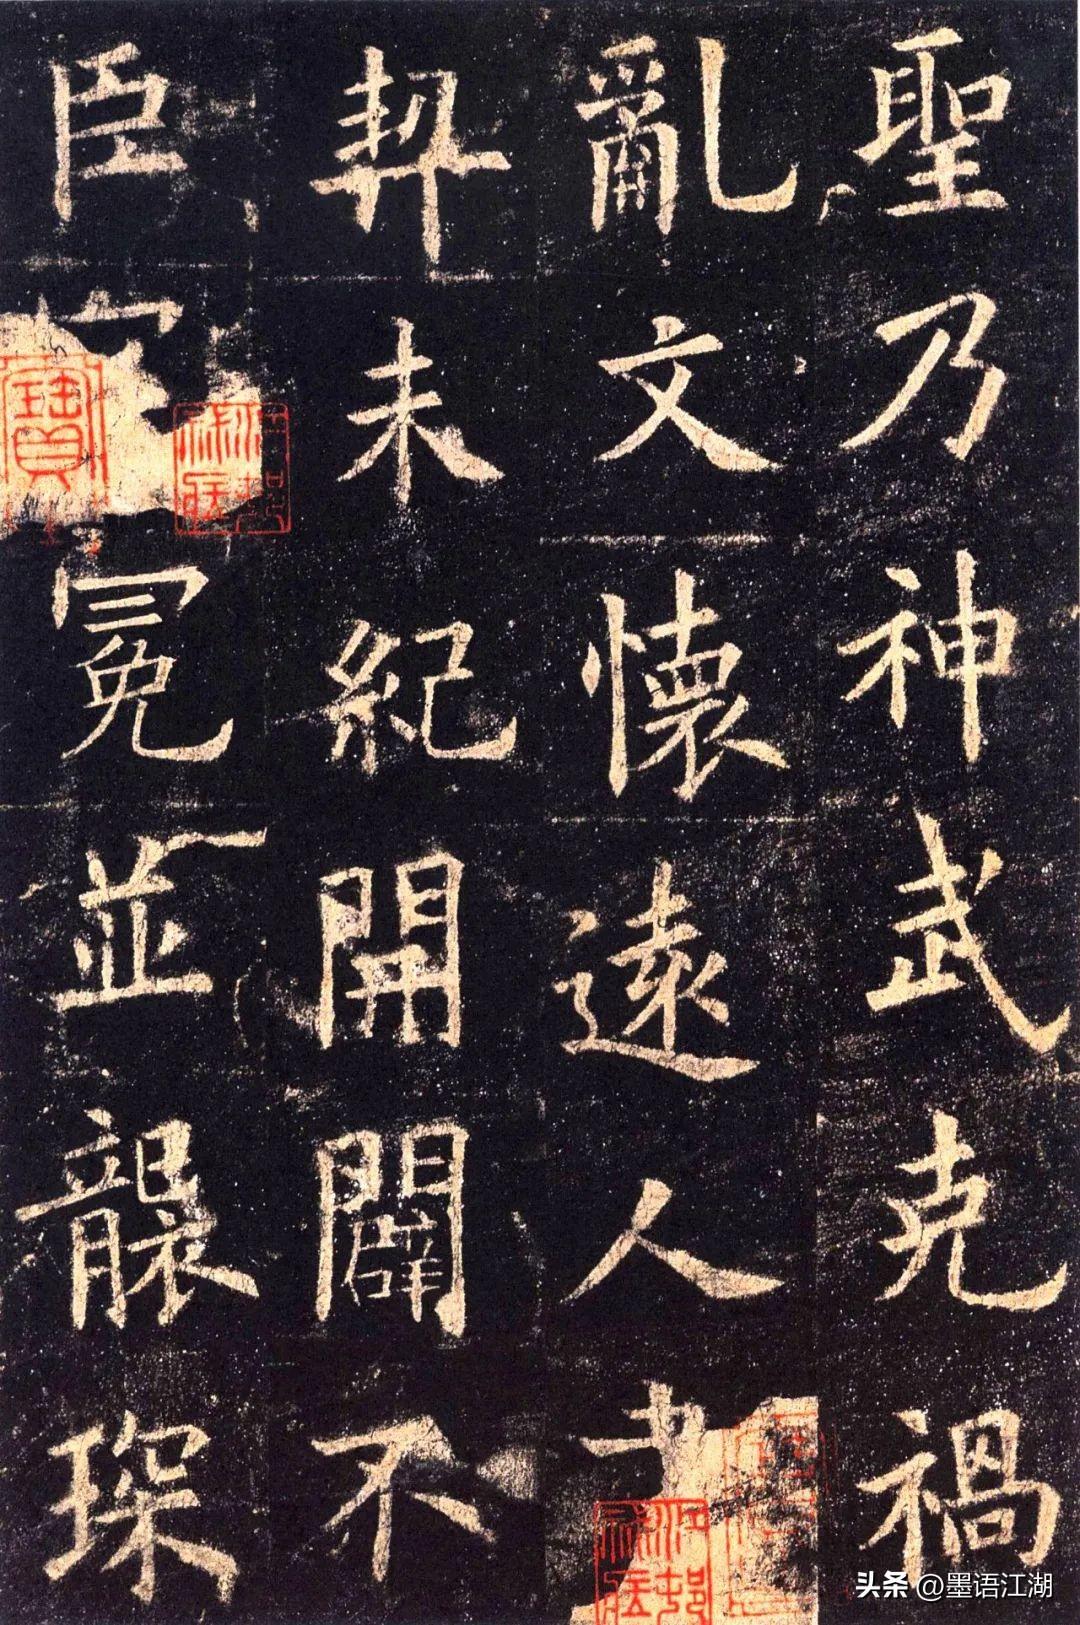 聖乃神武克禍
亂文懷遠人
契未紀開闢不
臣冕並襲琛
寶
头条 @墨语江湖